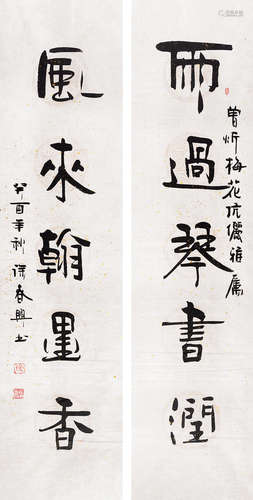 雨過琴書潤
曾炘梅花伉儷雅屬
風來翰墨香
癸酉年秋徐春興